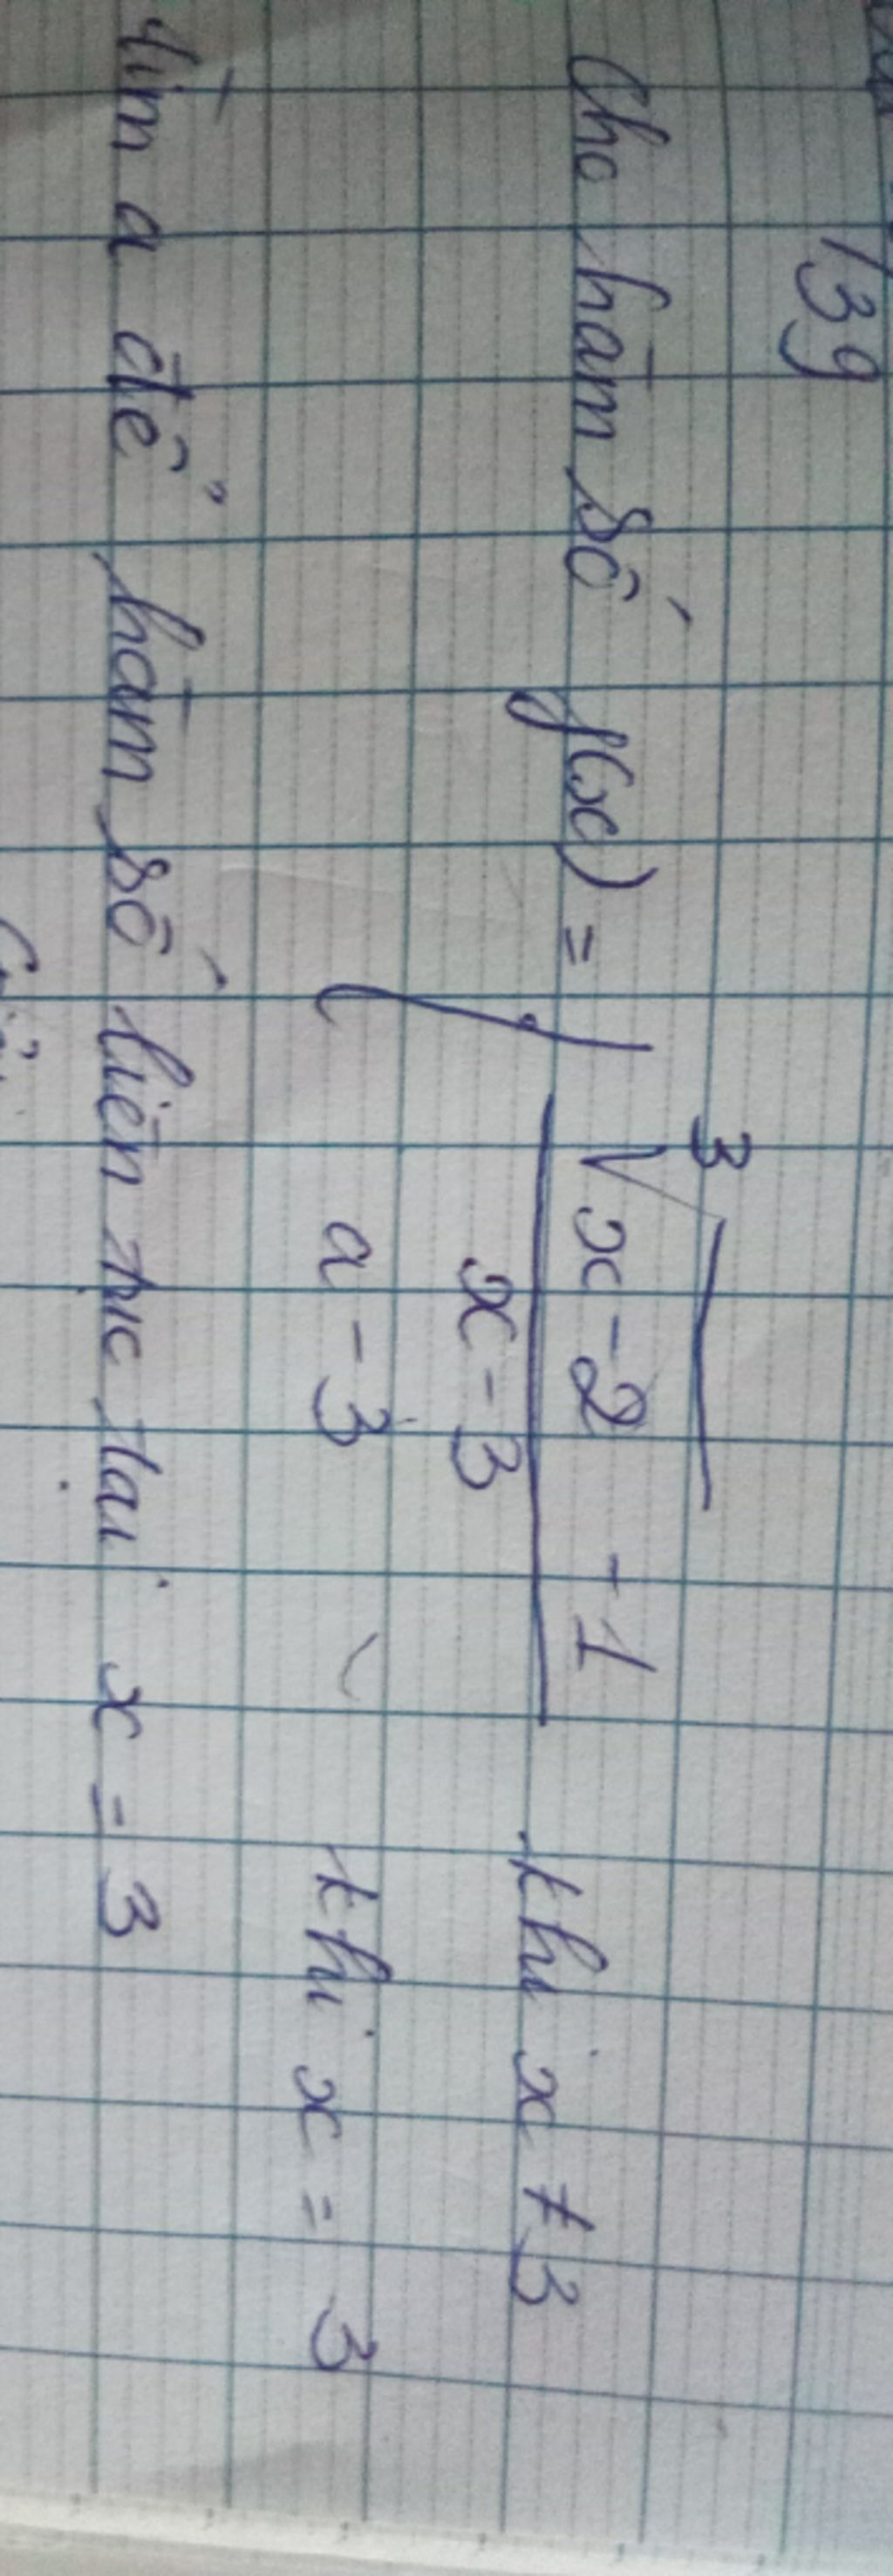 139
Cho hàm số f(x) = { ∛(x-2) + 1 / x - 3 khi x ≠ 3
a - 3 khi x = 3
Tìm a để hàm số liên tục tại x = 3